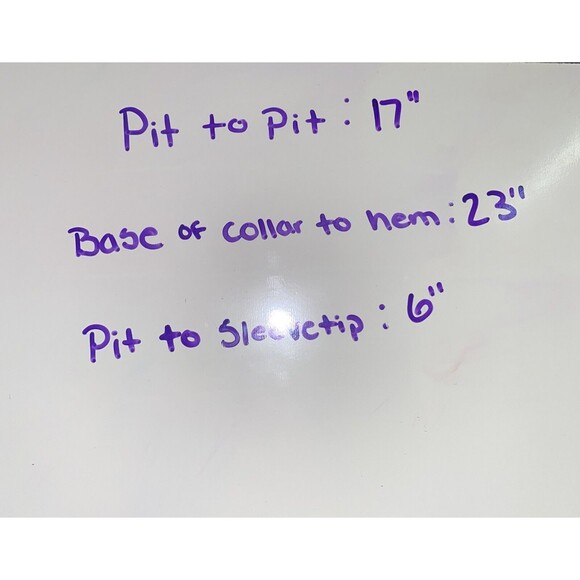 Pit to Pit : 17"
Base of collar to hem : 23"
Pit to Sleevetip : 6"